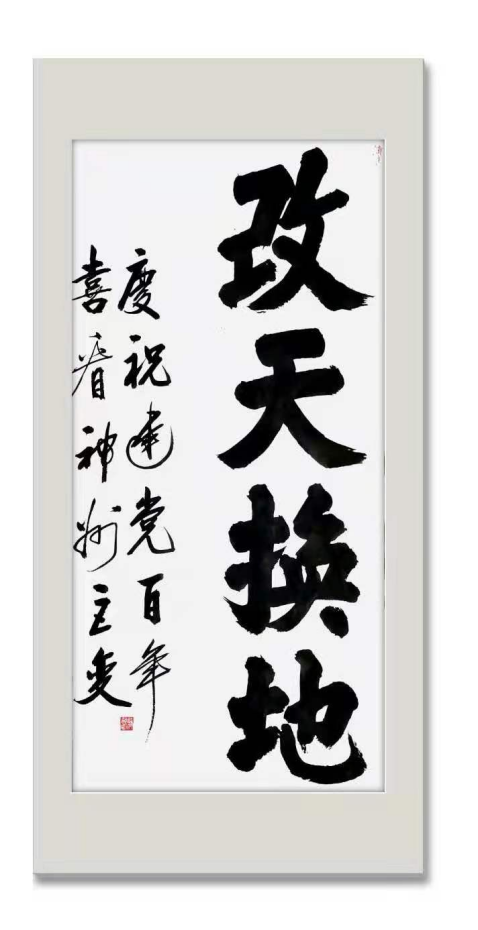 改天换地
慶祝建党百年
喜看神州巨变